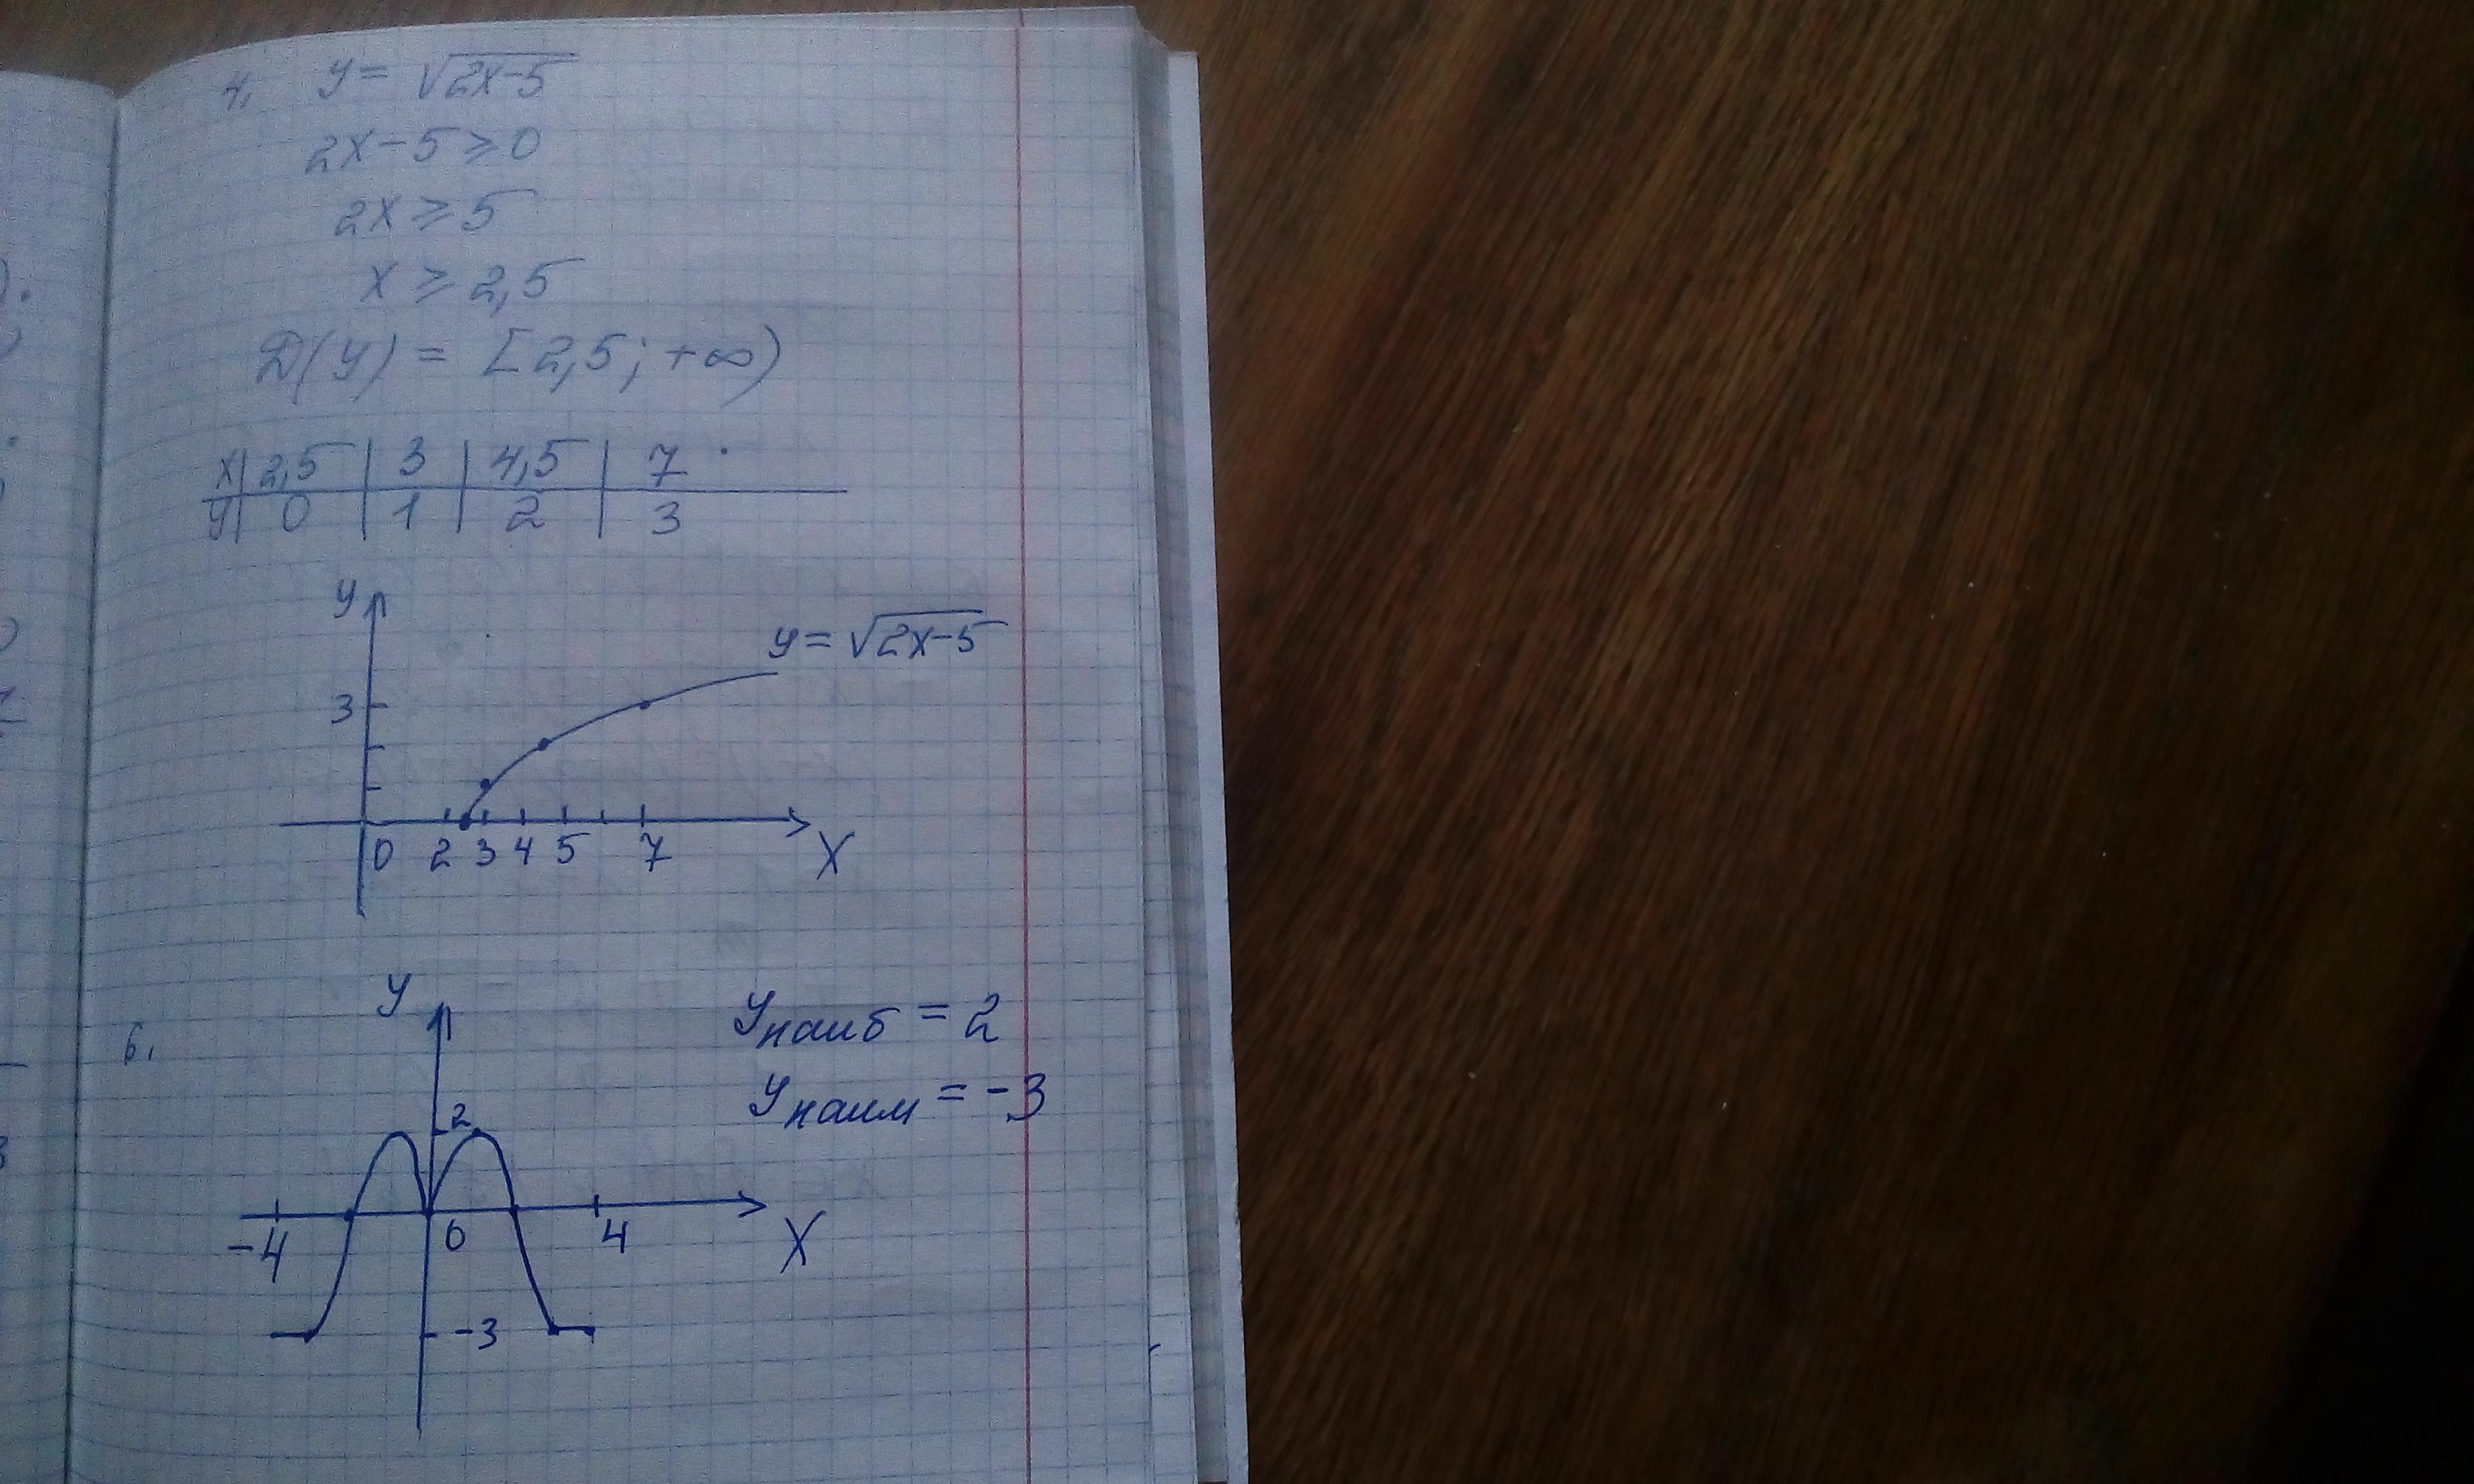 4. y = √2x-5
2x-5 ≥ 0
2x ≥ 5
x ≥ 2,5
D(y) = [2,5; +∞)
x | 2,5 | 3 | 4,5 | 7
y | 0 | 1 | 2 | 3
y
y = √2x-5
3
0 2 3 4 5 7 X
6.
y
Унаиб = 2
Унаим = -3
2
-4 0 4 X
-3